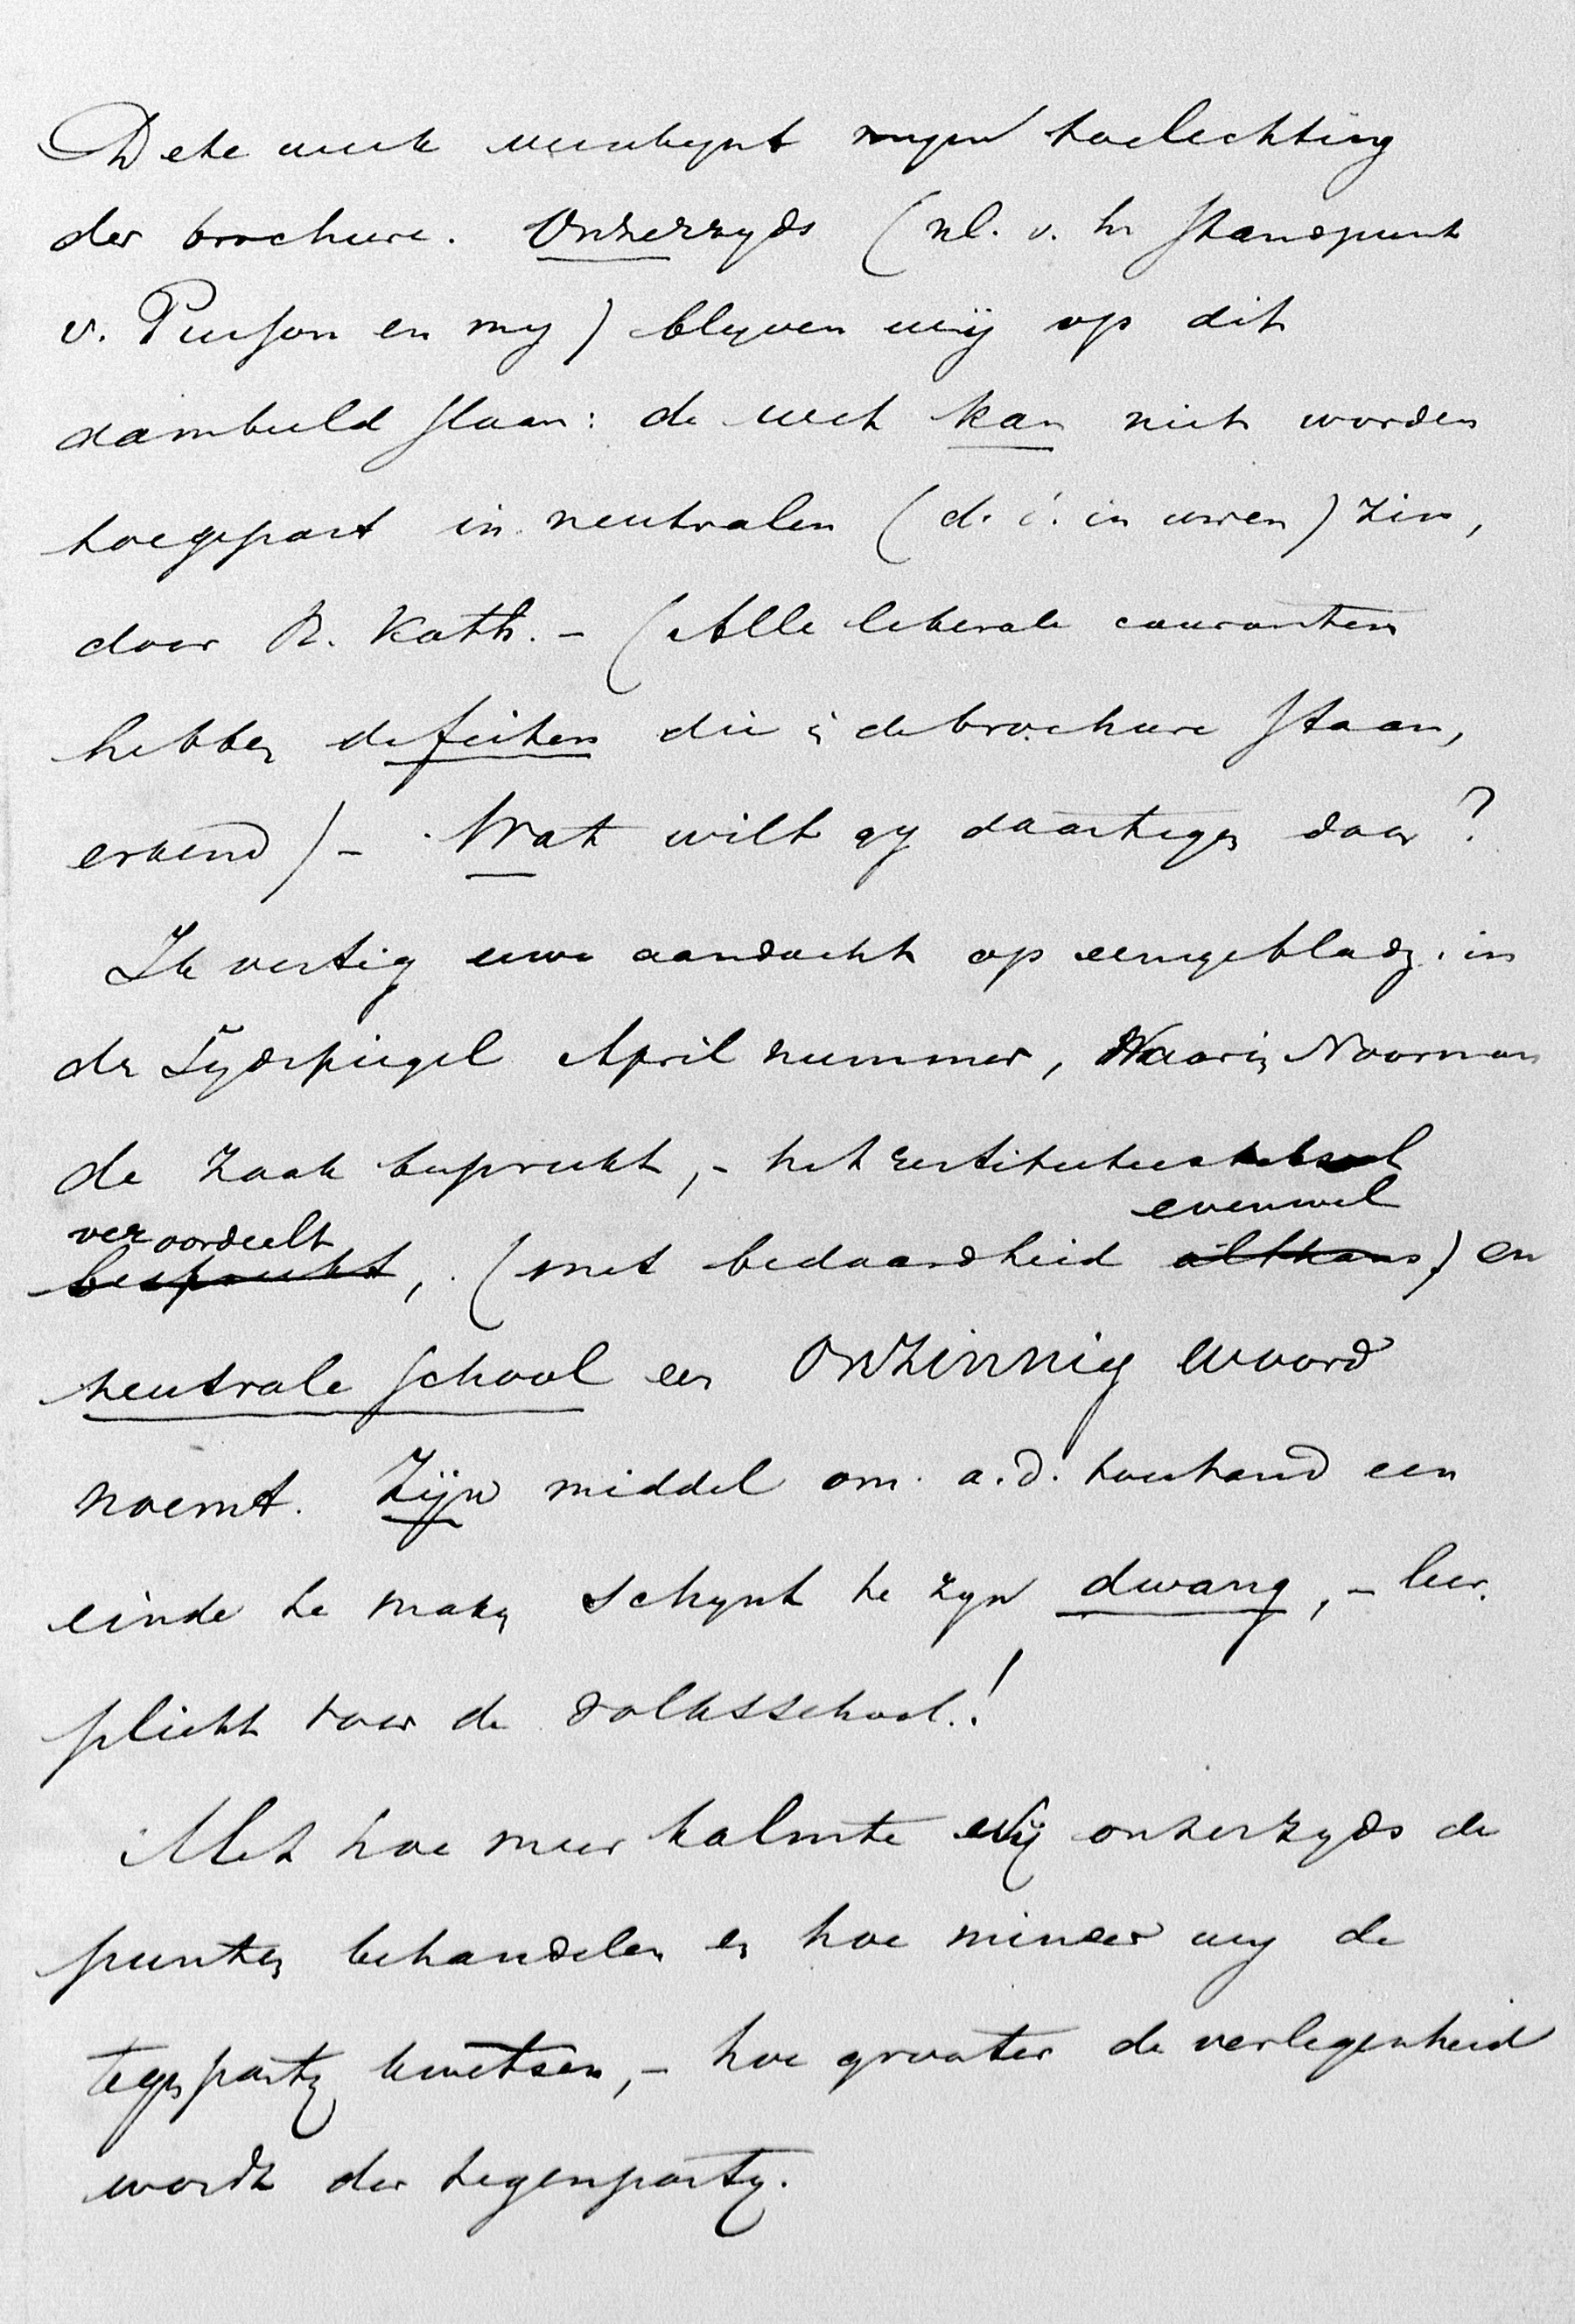 Deze week verschynt mijn toelichting
der brochure. Onzerzyds (nl. v. h. standpunt
v. Pierson en my) blyven wij op dit
dambeeld staan: de wet kan niet worden
toegepast in neutralen (d. i. in uwen) zin,
door R. Kath. – (Alle liberale couranten
hebben de feiten die in de brochure staan,
erkend) – Wat wilt gy daartegen doen?
Ik vestig uwe aandacht op eenige bladz. in
de Tydspiegel April nummer, Waarin Noorman
de zaak bespreekt, – het restitutiestelsel
veroordeelt evenwel
bespreekt, (met bedaardheid althans) en
neutrale school een onzinnig woord
noemt. Zijn middel om a.d. toestand een
einde te maken schynt te zyn dwang, – leer
plicht voor de volksschool!
Met hoe meer kalmte wij onzerzyds de
punten behandelen en hoe minder wy de
tegenparty kwetsen, – hoe grooter de verlegenheid
wordt der tegenparty.